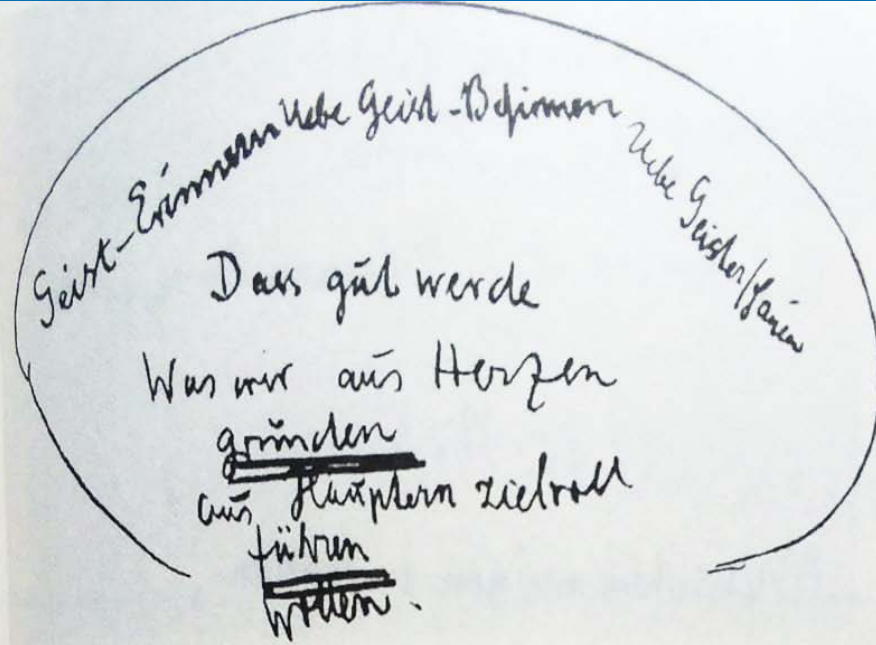 Geist-Erinnern
Uebe Geist-Besinnen
Uebe Geisterschauen
Dass gut werde
Was wir aus Herzen
gründen
aus Häuptern zielvoll
führen
wollen.